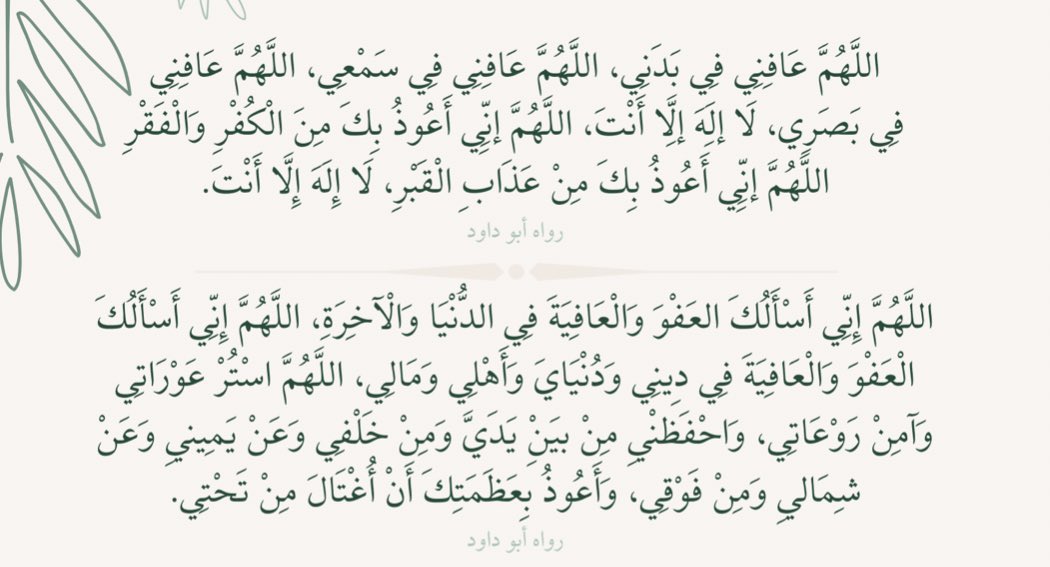 اللَّهُمَّ عَافِنِي فِي بَدَنِي، اللَّهُمَّ عَافِنِي فِي سَمْعِي، اللَّهُمَّ عَافِنِي
فِي بَصَرِي، لَا إِلَهَ إِلَّا أَنْتَ، اللَّهُمَّ إِنِّي أَعُوذُ بِكَ مِنَ الْكُفْرِ وَالْفَقْرِ
اللَّهُمَّ إِنِّي أَعُوذُ بِكَ مِنْ عَذَابِ الْقَبْرِ، لَا إِلَهَ إِلَّا أَنْتَ.
رواه أبو داود
اللَّهُمَّ إِنِّي أَسْأَلُكَ العَفْوَ وَالْعَافِيَةَ فِي الدُّنْيَا وَالْآخِرَةِ، اللَّهُمَّ إِنِّي أَسْأَلُكَ
الْعَفْوَ وَالْعَافِيَةَ فِي دِينِي وَدُنْيَايَ وَأَهْلِي وَمَالِي، اللَّهُمَّ اسْتُرْ عَوْرَاتِي
وَآمِنْ رَوْعَاتِي، وَاحْفَظْنِي مِنْ بَيَنِْ يَدَيَّ وَمِنْ خَلْفِي وَعَنْ يَمِينِي وَعَنْ
شِمَالِي وَمِنْ فَوْقِي، وَأَعُوذُ بِعَظَمَتِكَ أَنْ أُغْتَالَ مِنْ تَحْتِي.
رواه أبو داود